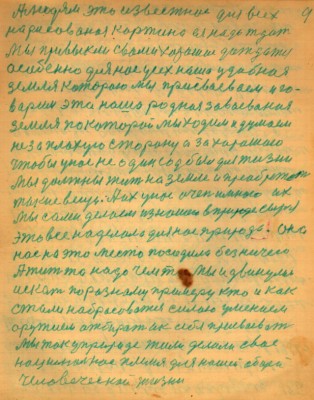 9
А людям это известное для всех
нарисованая картина а надо
Мы привыкли своими дождати
особенно для нас усех наша удобная
земля которою мы присваеваем и го-
варим эта наша родная завоеваная
земля по которой мы ходим и думаем
не за плохую сторону а за хорошою
чтобы у нас не один год был для жизни
мы должны жить на земле и приобретат
такие вещи. Их у нас очен много их
Мы сами делаем из нашой в природе
Это все наделало для нас природа. Она
нас на это место посадила без ничего
А жит то надо чем то Мы и двинулис
искат по разному примеру кто и как
стали набрасоватся силою умением
оружием атбират и к себе присваеват
Мы так у природе жили делали свое
национальное племя для нашей общей
Человеческой жизни